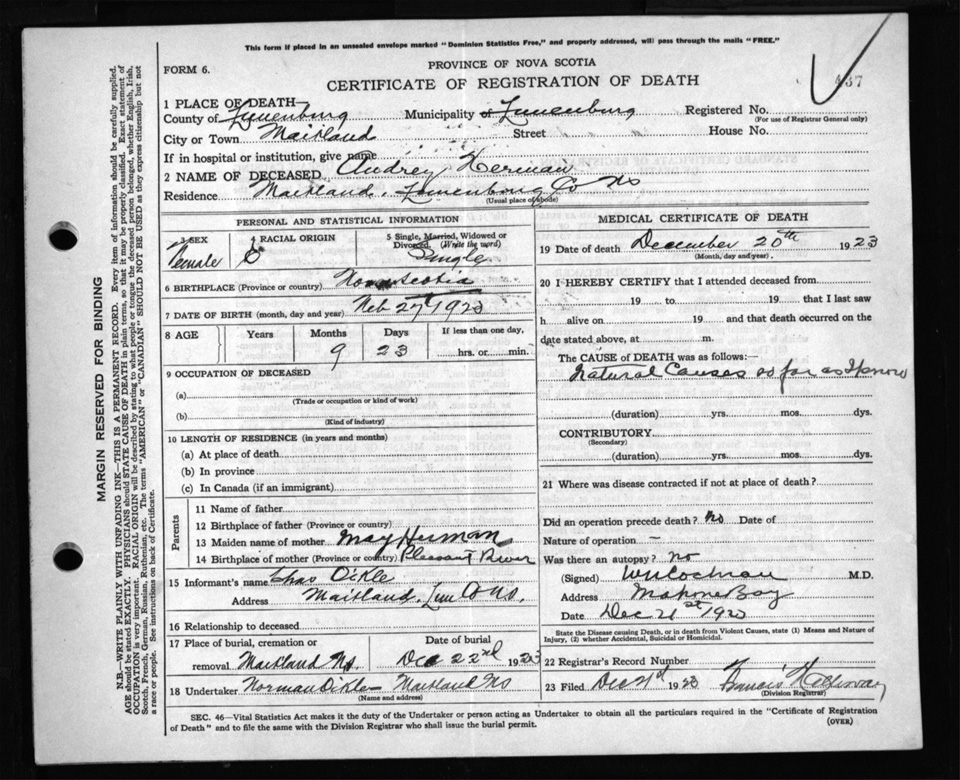 This form if placed in an unsealed envelope marked "Dominion Statistics Free," and properly addressed, will pass through the mails "FREE."
PROVINCE OF NOVA SCOTIA
FORM 6.
CERTIFICATE OF REGISTRATION OF DEATH
437
1 PLACE OF DEATH—
County of Lunenburg Municipality of Lunenburg Registered No.
(For use of Registrar General only)
City or Town Maitland Street House No.
If in hospital or institution, give name
2 NAME OF DECEASED Audrey Herman
Residence Maitland, Lunenburg Co NS
(Usual place of abode)
PERSONAL AND STATISTICAL INFORMATION
3 SEX Female
4 RACIAL ORIGIN
5 Single, Married, Widowed or Divorced. (Write the word)
Single
6 BIRTHPLACE (Province or country) Nova Scotia
7 DATE OF BIRTH (month, day and year) Feb 27th 1923
8 AGE Years Months Days If less than one day,
9 23 hrs. or min.
9 OCCUPATION OF DECEASED
(a)
(Trade or occupation or kind of work)
(b)
(Kind of industry)
10 LENGTH OF RESIDENCE (in years and months)
(a) At place of death
(b) In province
(c) In Canada (if an immigrant)
Parents
11 Name of father
12 Birthplace of father (Province or country)
13 Maiden name of mother May Herman
14 Birthplace of mother (Province or country) Pleasant River
15 Informant's name Chas Oickle
Address Maitland, Lun Co NS.
16 Relationship to deceased
17 Place of burial, cremation or removal Maitland NS. Date of burial Dec 22nd 1923
18 Undertaker Norman Oickle Maitland NS
(Name and address)
MEDICAL CERTIFICATE OF DEATH
19 Date of death December 20th 1923
(Month, day and year)
20 I HEREBY CERTIFY that I attended deceased from
19 to 19 that I last saw
h alive on 19 and that death occurred on the
date stated above, at m.
The CAUSE of DEATH was as follows:—
Natural Causes as far as I know
(duration) yrs. mos. dys.
CONTRIBUTORY
(Secondary)
(duration) yrs. mos. dys.
21 Where was disease contracted if not at place of death?
Did an operation precede death? No Date of
Nature of operation —
Was there an autopsy? No
(Signed) Cochran M.D.
Address Mahone Bay
Date Dec 21st 1923
State the Disease causing Death, or in death from Violent Causes, state (1) Means and Nature of Injury, (2) whether Accidental, Suicidal or Homicidal.
22 Registrar's Record Number
23 Filed Dec 1923 Francis
(Division Registrar)
SEC. 46—Vital Statistics Act makes it the duty of the Undertaker or person acting as Undertaker to obtain all the particulars required in the "Certificate of Registration
of Death" and to file the same with the Division Registrar who shall issue the burial permit.
(OVER)
MARGIN RESERVED FOR BINDING
N.B.—WRITE PLAINLY WITH UNFADING INK—THIS IS A PERMANENT RECORD. Every item of information should be carefully supplied.
AGE should be stated EXACTLY. PHYSICIANS should STATE CAUSE OF DEATH in plain terms, so that it may be properly classified. Exact statement of
OCCUPATION is very important. RACIAL ORIGIN will be described by stating to what people or tongue the deceased person belonged, whether English, Irish,
Scotch, French, German, Russian, Ruthenian, etc. The terms "AMERICAN" or "CANADIAN" SHOULD NOT BE USED as they express citizenship but not
a race or people. See instructions on back of Certificate.